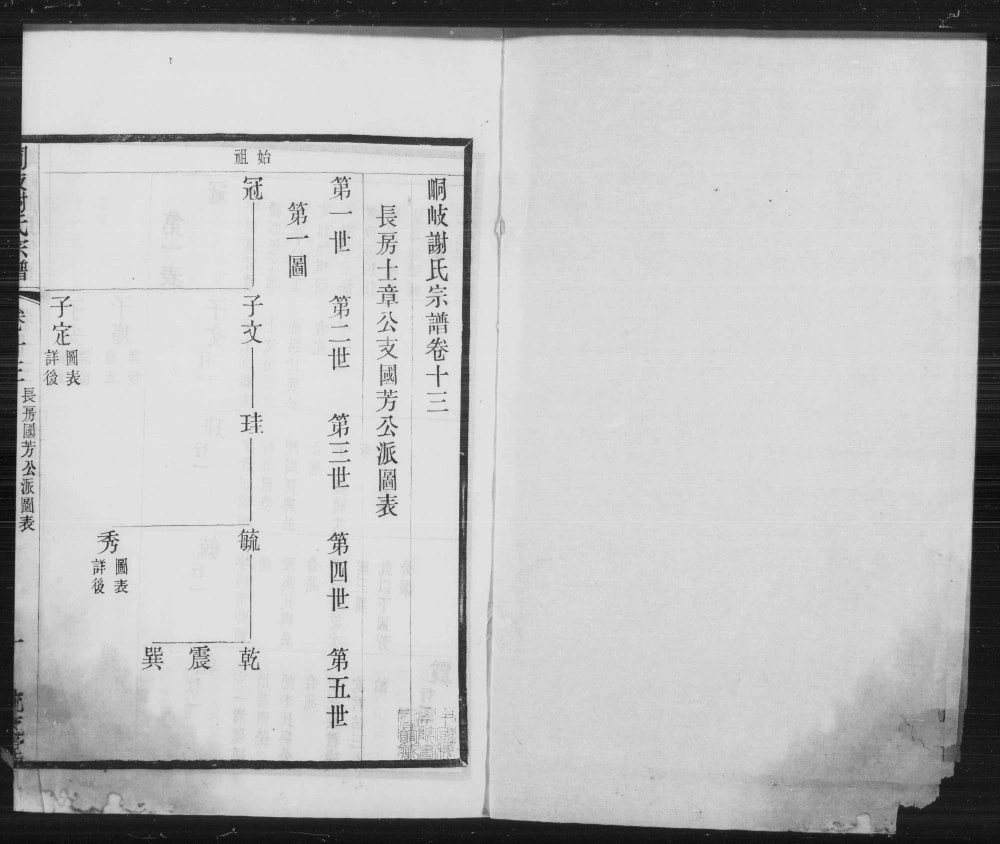 峒岐謝氏宗譜卷十三
長房士章公支國芳公派圖表
第一世 第二世 第三世 第四世 第五世
第一圖
始祖
冠 子文 珪 毓 乾
震
巽
秀 圖表詳後
子定 圖表詳後
謝氏宗譜
長房國芳公派圖表
一